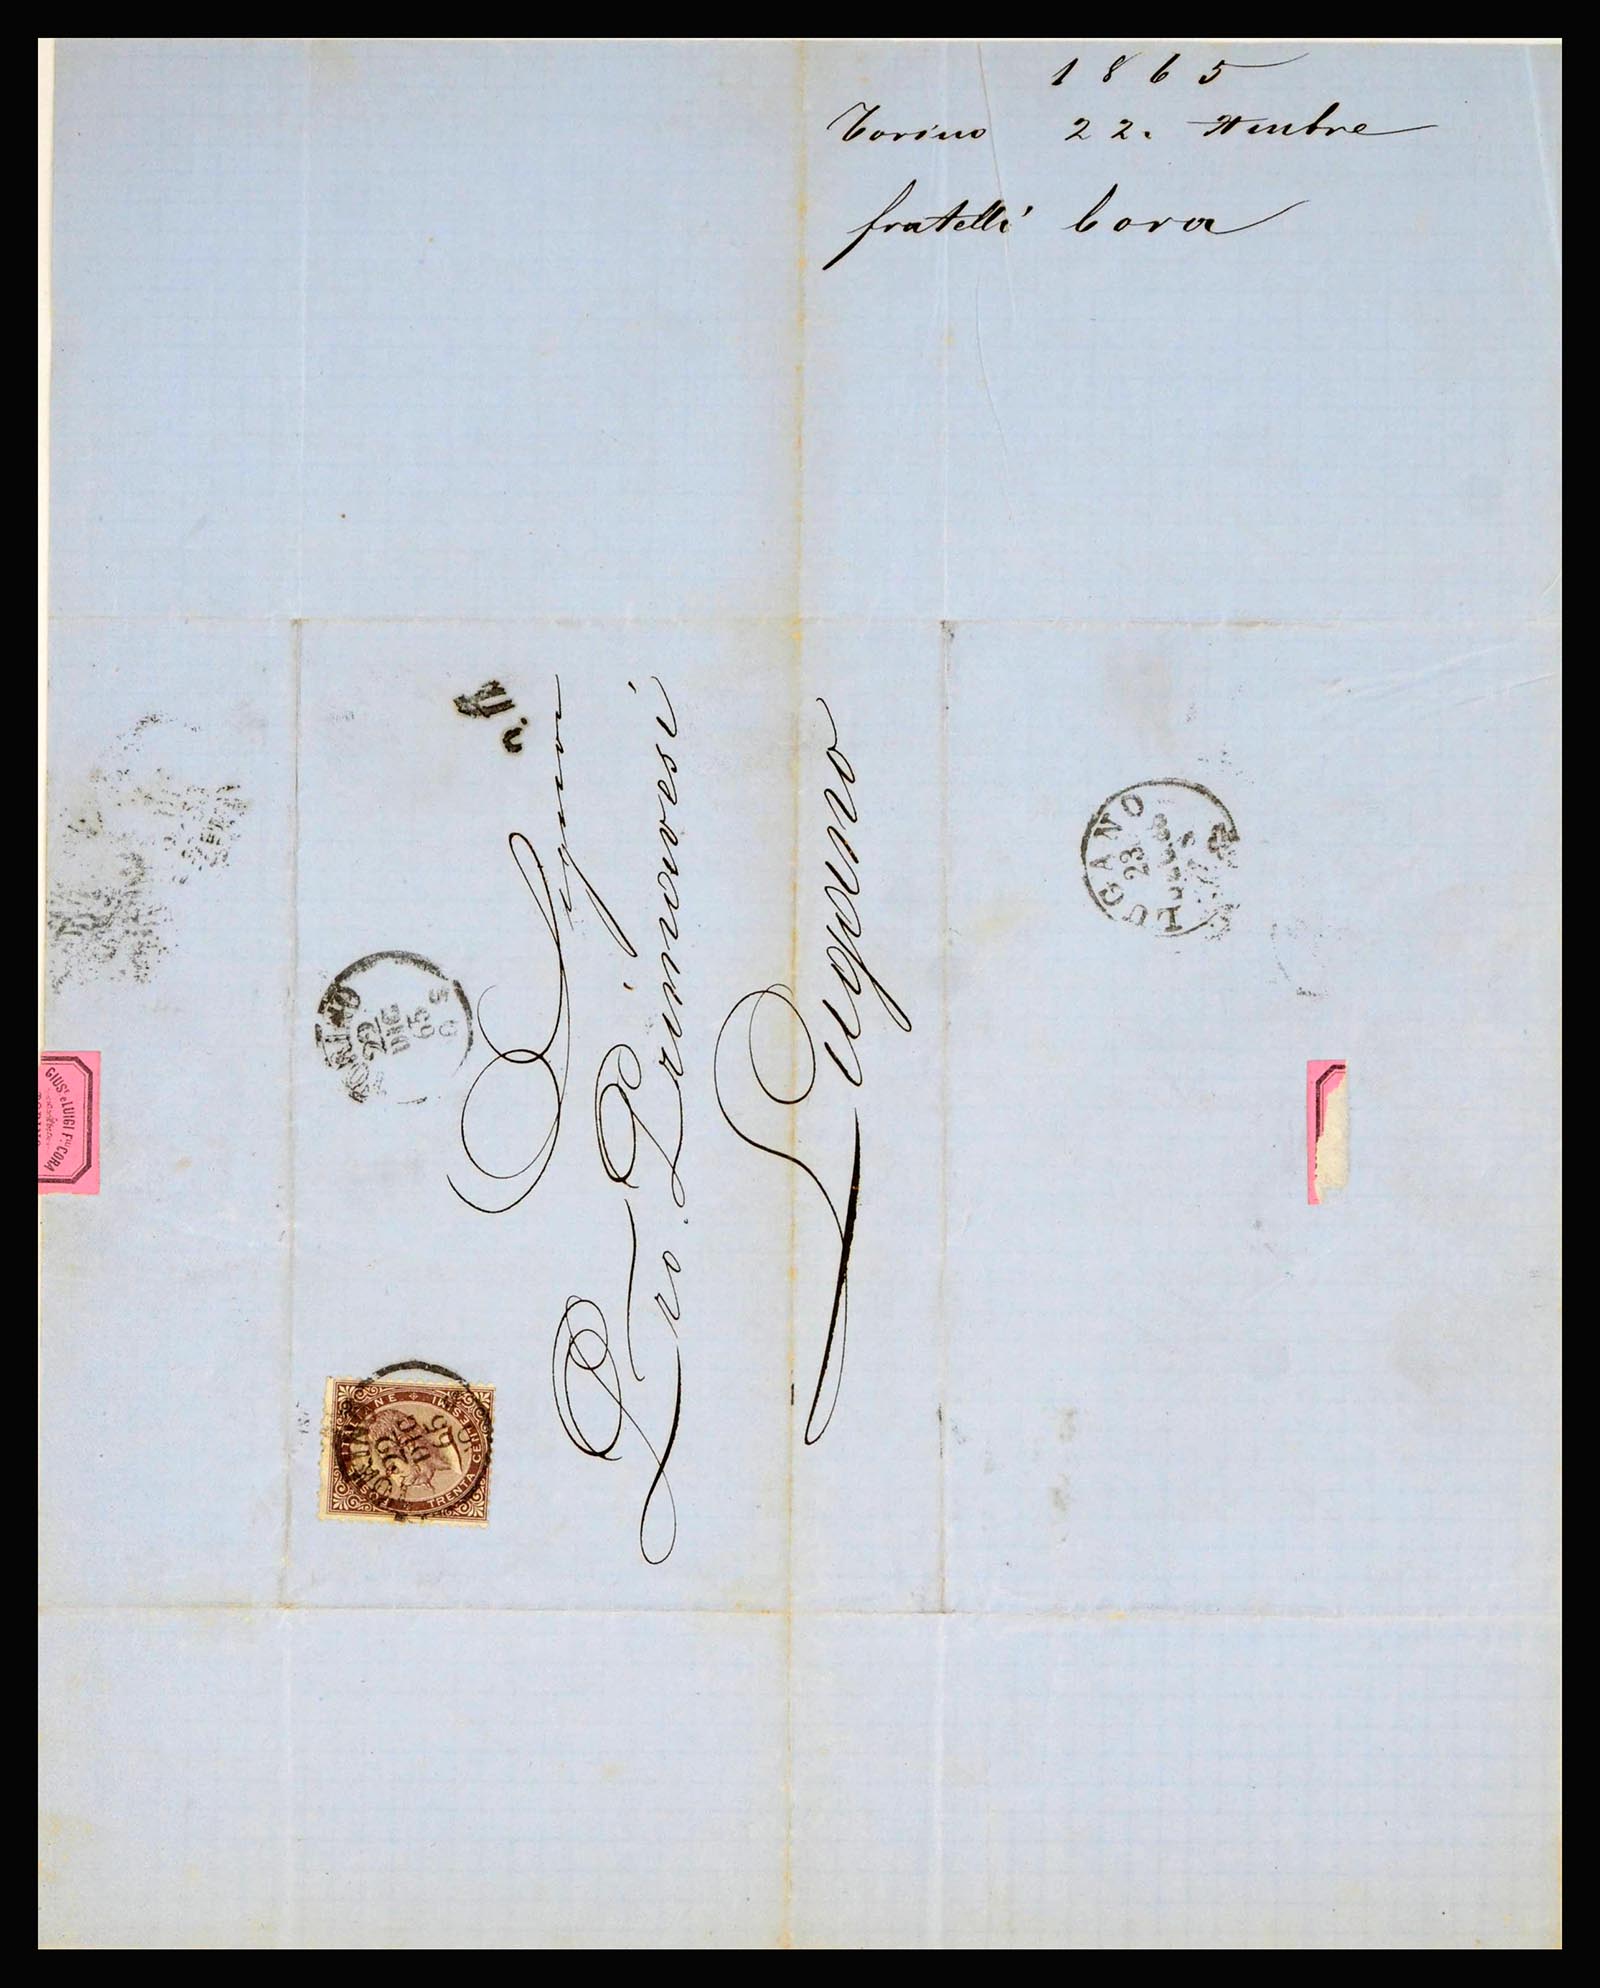 1865
Torino 22. Xmbre
fratelli Cora
Signor
Pro. Primavesi
Lugano
TORINO
22
DIC
65
9 S
LUGANO
23
POSTE ITALIANE
TRENTA CENTESIMI
TORINO
22
DIC
65
GIUS. e LUIGI F.lli CORA